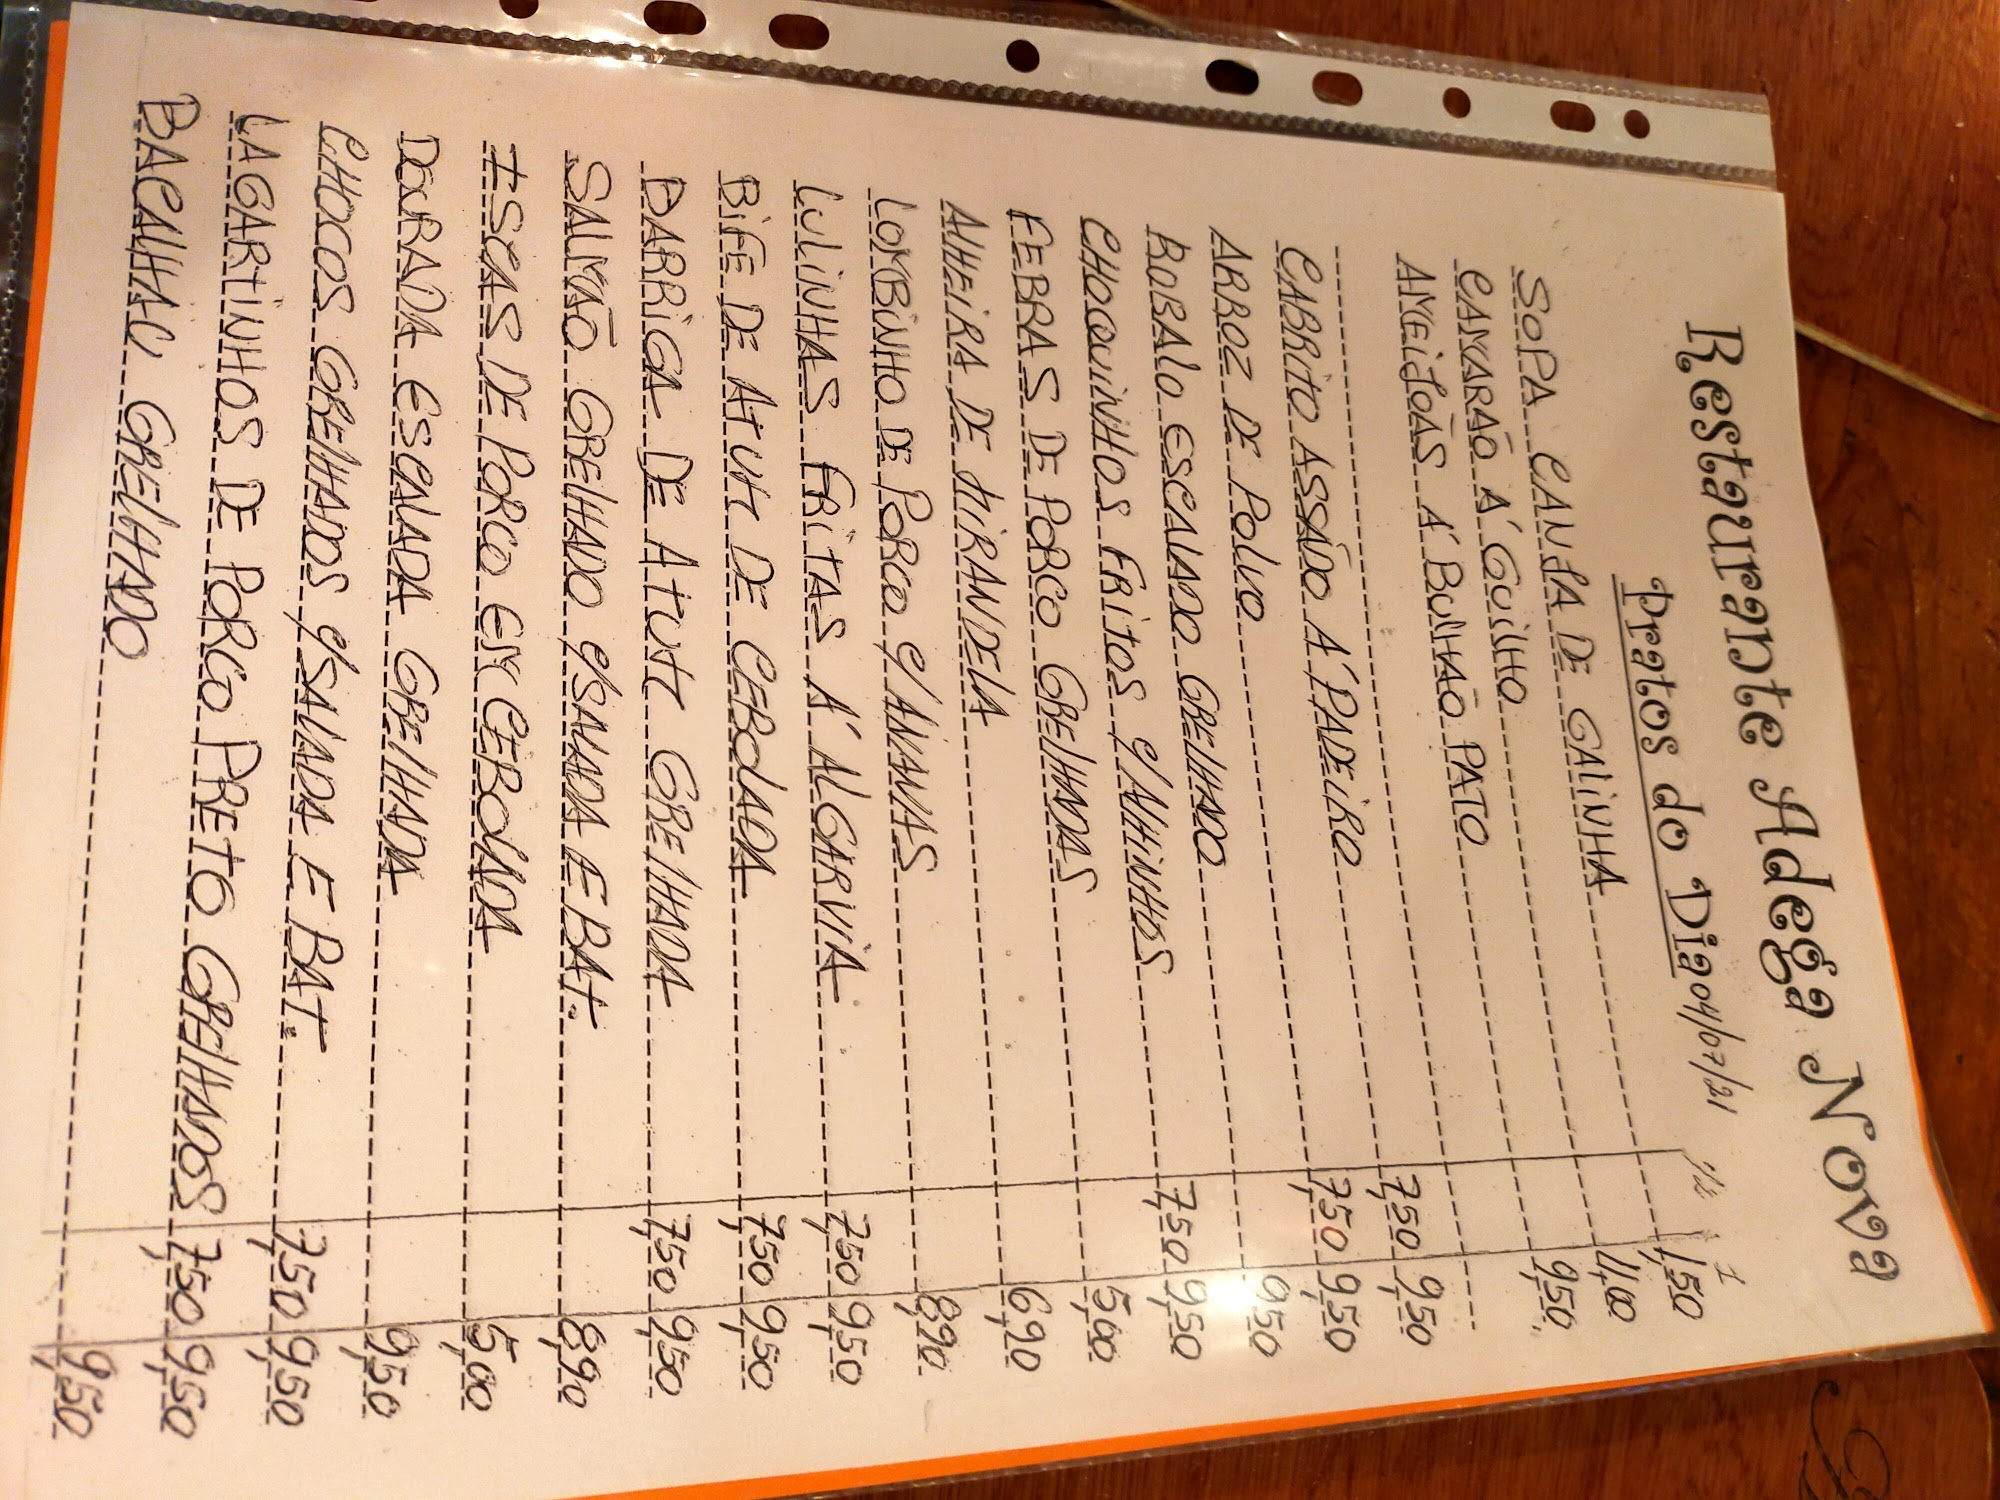 Restaurante Adega Nova
Pratos do Dia 04/07/21 1/2 1
SOPA CANJA DE GALINHA 1,50
CAMARÃO Á GUILHO 11,00
AMEIJOAS Á BULHÃO PATO 9,50
CABRITO ASSADO Á PADEIRO 7,50 9,50
ARROZ DE POLVO 7,50 9,50
ROBALO ESCALADO GRELHADO 9,50
CHOQUINHOS FRITOS C/ALHINHOS 7,50 9,50
FEBRAS DE PORCO GRELHADAS 5,00
ALHEIRA DE MIRANDELA 6,90
LOMBINHO DE PORCO C/ANANAS 8,90
LULINHAS FRITAS Á ALGARVIA 7,50 9,50
BIFE DE ATUM DE CEBOLADA 7,50 9,50
BARRIGA DE ATUM GRELHADA 7,50 9,50
SALMÃO GRELHADO C/SALADA E BAT. 8,90
ISCAS DE PORCO EM CEBOLADA 5,00
DOURADA ESCALADA GRELHADA 9,50
CHOCOS GRELHADOS C/SALADA E BAT. 7,50 9,50
LAGARTINHOS DE PORCO PRETO GRELHADOS 7,50 9,50
BACALHAU GRELHADO 9,50